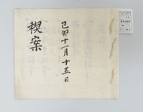 己卯十一月十五日
楔案